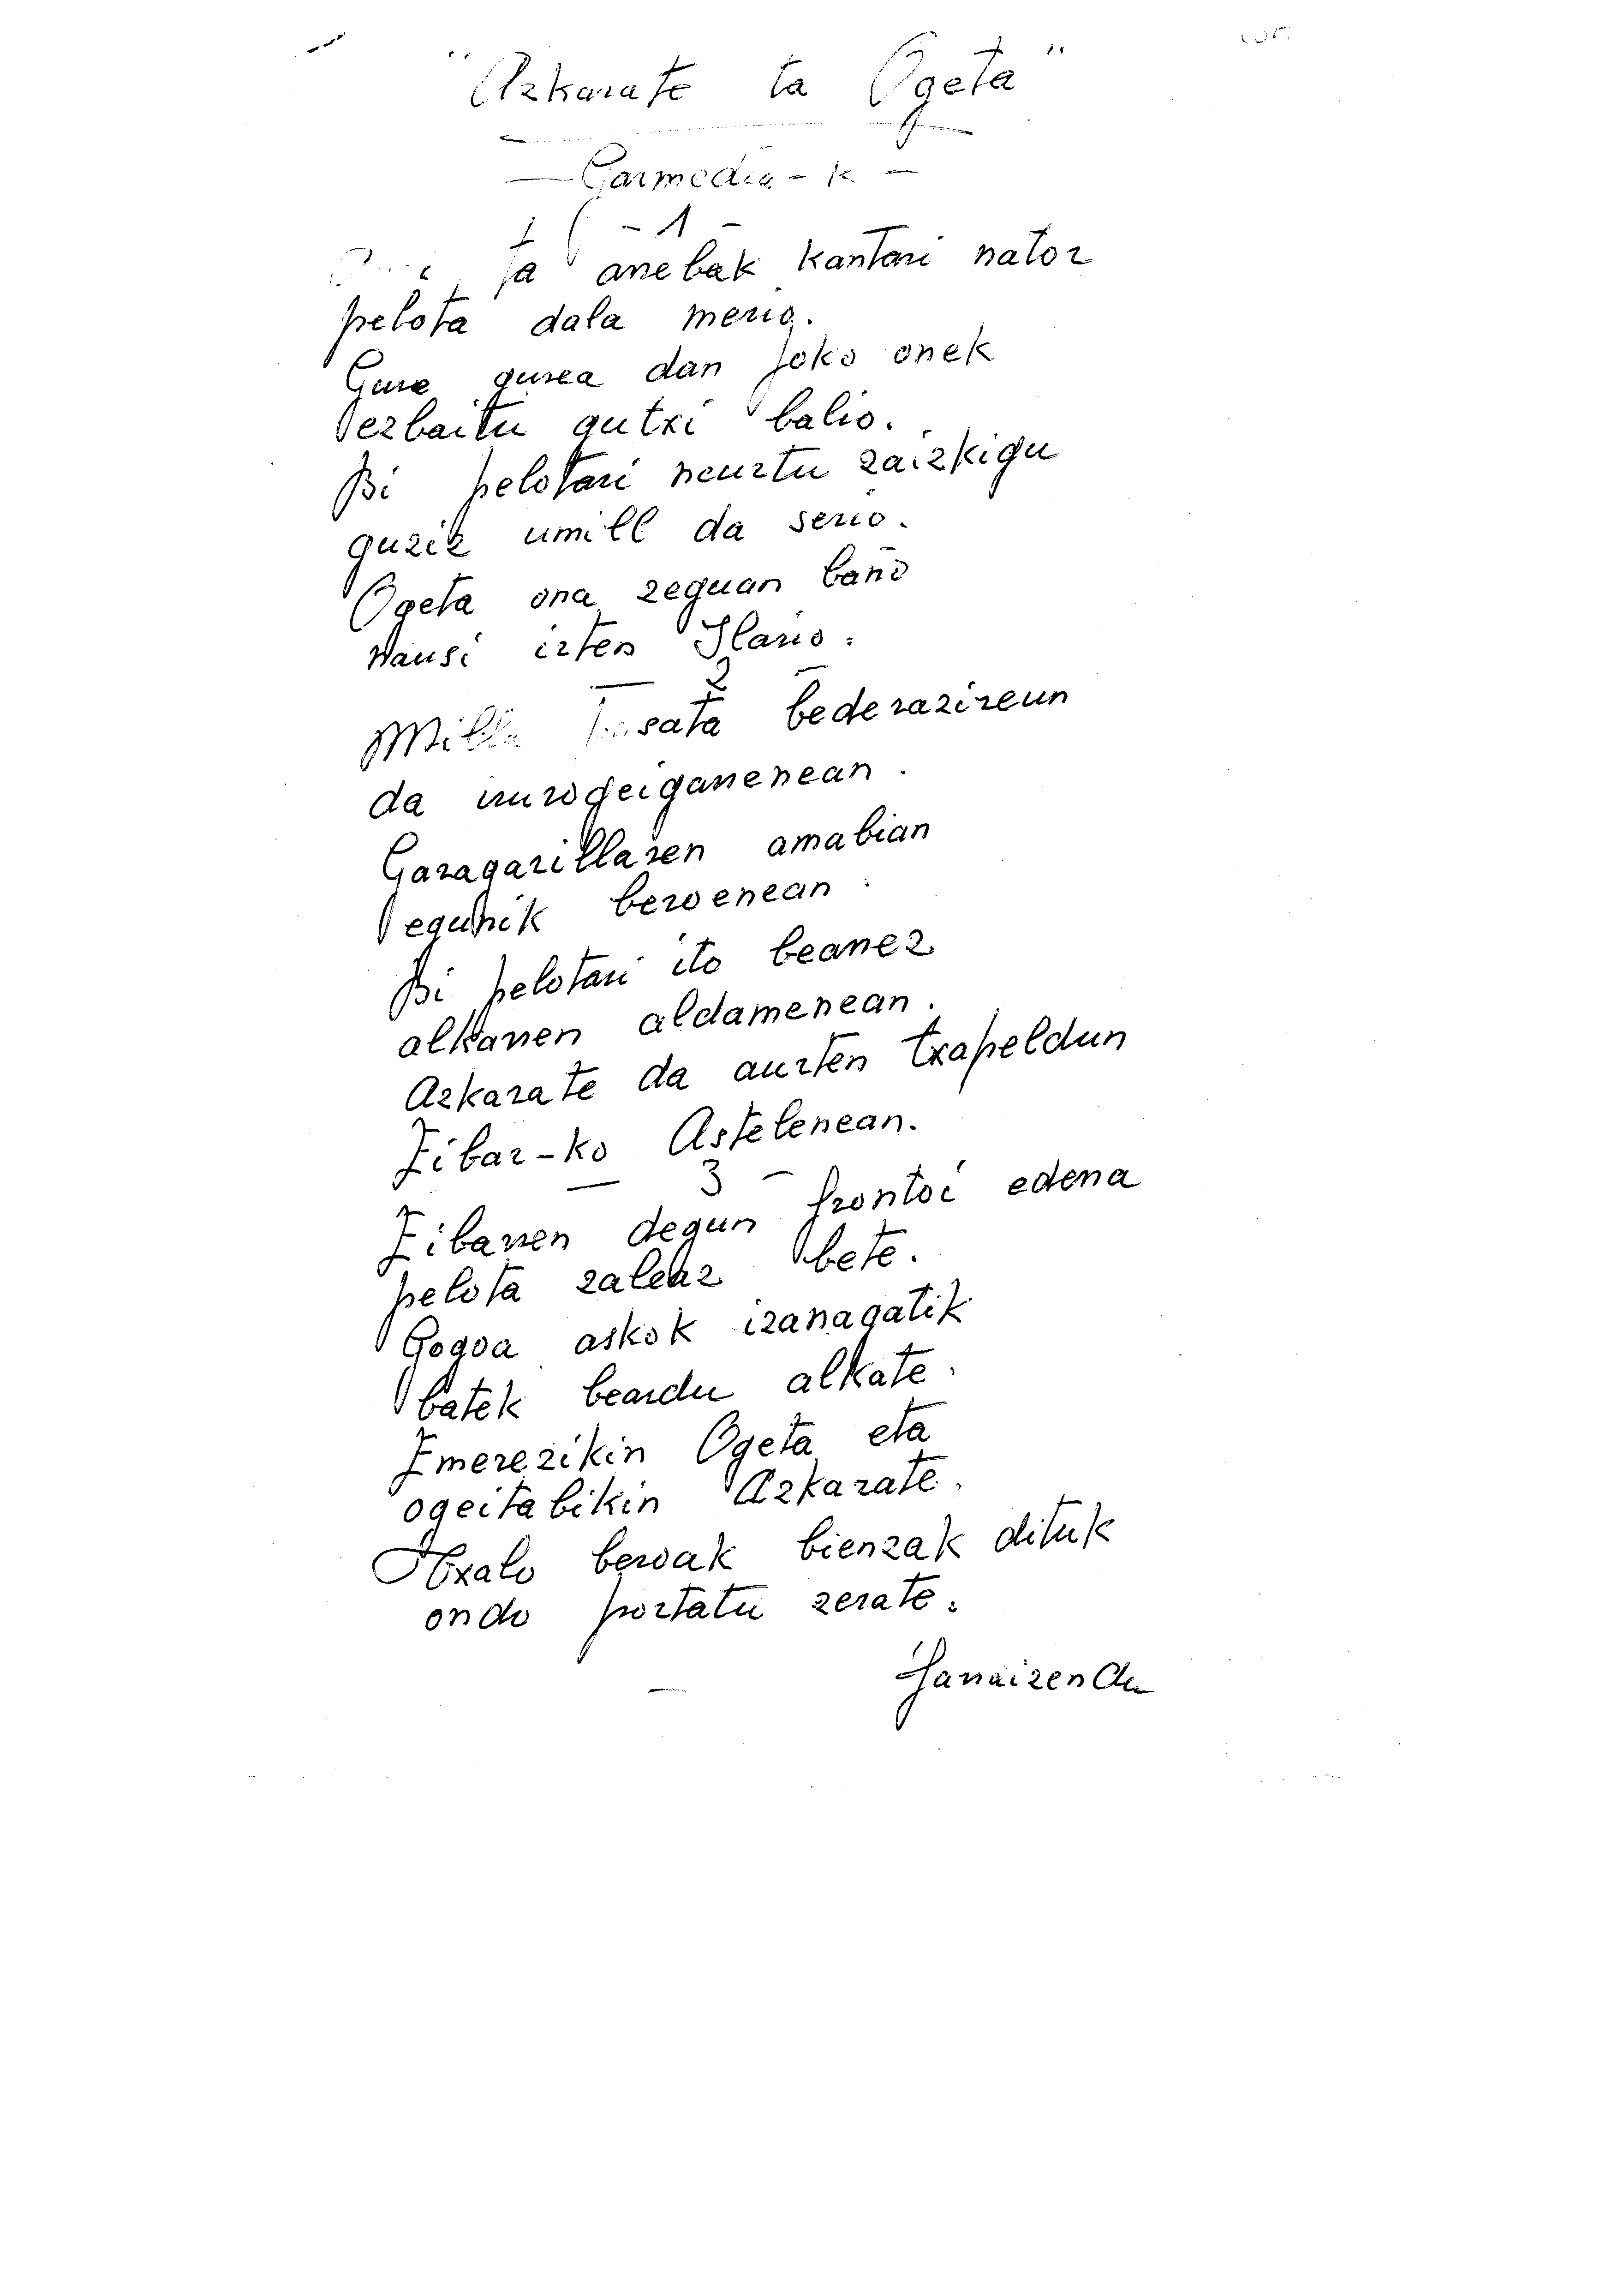 "Azkarate ta Ogeta"
- Garmedia-k -
- 1 -
ta arrebak kantari nator
pelota dala merio.
Gure gurea dan joko onek
ezbaitu gutxi balio.
Bi pelotari neurtu zaizkigu
guziz umill da serio.
Ogeta ona zeguan bañõ
nausi irten Ilario.
- 2 -
Milla pasata bederazireun
da irurogeigarrenean.
Garagarillaren amabian
egunik beroenean.
Bi pelotari ito bearrez
alkarren aldamenean.
Azkarate da aurten txapeldun
Eibar-ko Astelenean.
- 3 -
Eibarren degun frontoi ederra
pelota zaleaz bete.
Gogoa askok izanagatik
batek beardu alkate.
Emerezikin Ogeta eta
ogeitabikin Azkarate.
Txalo beroak bienzak dituk
ondo portatu zerate.